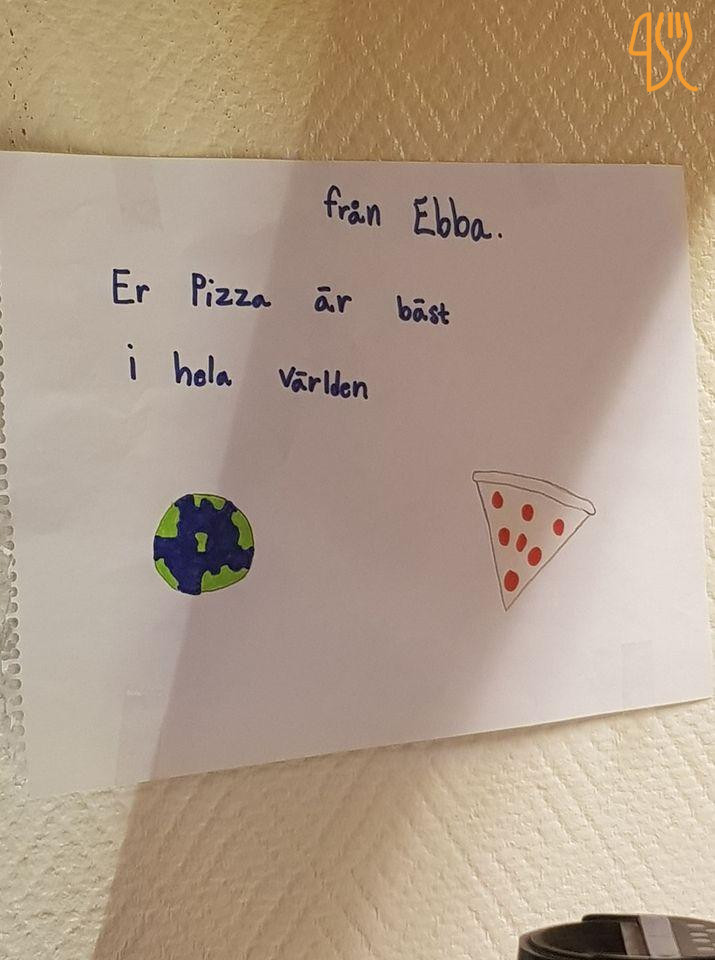 från Ebba.
Er Pizza är bäst
i hela världen